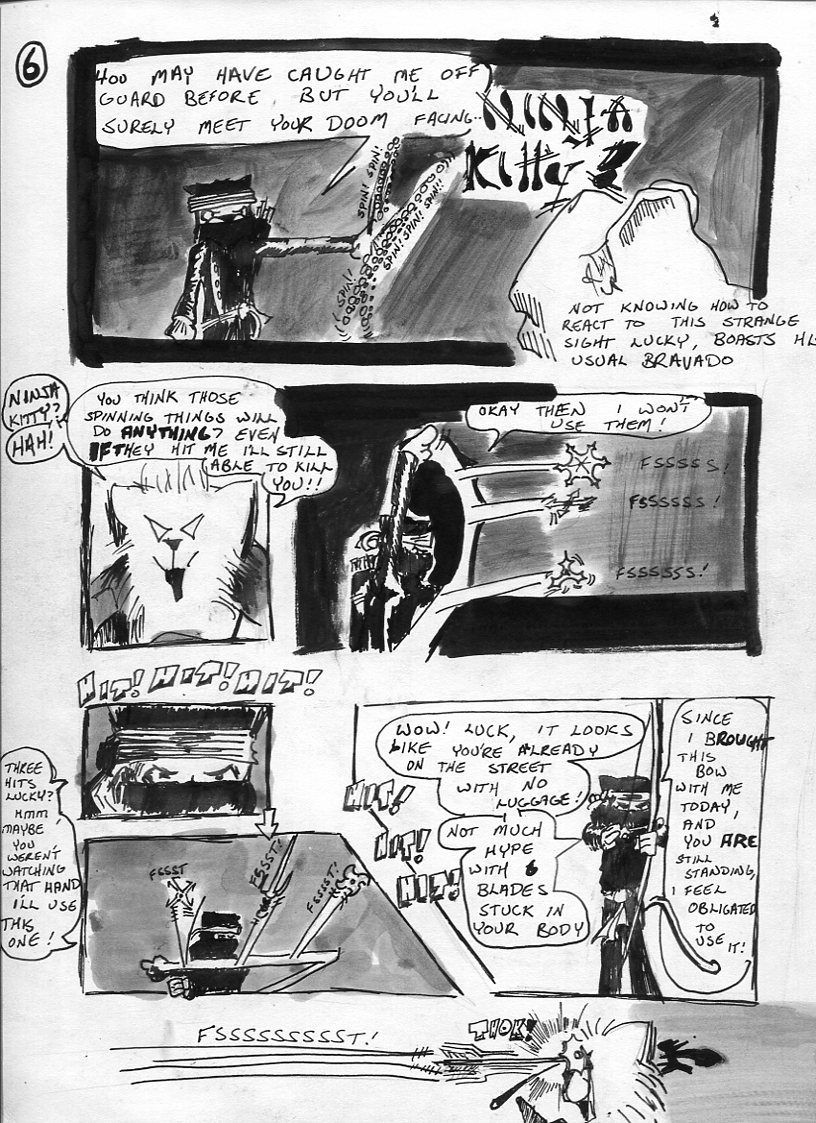 6
YOU MAY HAVE CAUGHT ME OFF
GUARD BEFORE, BUT YOU'LL
SURELY MEET YOUR DOOM FACING..
NINJA
Kitty
SPIN! SPIN!
SPIN! SPIN! SPIN!!
SPIN!!
NOT KNOWING HOW TO
REACT TO THIS STRANGE
SIGHT LUCKY, BOASTS HIS
USUAL BRAVADO
NINJA
KITTY?
HAH!
YOU THINK THOSE
SPINNING THINGS WILL
DO ANYTHING? EVEN
IF THEY HIT ME I'LL STILL
ABLE TO KILL
YOU!!
OKAY THEN I WON'T
USE THEM!
FSSSSS!
FSSSSSS!
FSSSSSS!
HIT! HIT! HIT!
THREE
HITS
LUCKY?
HMM
MAYBE
YOU
WEREN'T
WATCHING
THAT HAND
I'LL USE
THIS
ONE!
FSSST
FSSST!
FSSSST!
HIT!
HIT!
HIT!
WOW! LUCK, IT LOOKS
LIKE YOU'RE ALREADY
ON THE STREET
WITH NO
LUGGAGE!
NOT MUCH
HYPE
WITH 6
BLADES
STUCK IN
YOUR BODY
SINCE
I BROUGHT
THIS
BOW
WITH ME
TODAY,
AND
YOU ARE
STILL
STANDING,
I FEEL
OBLIGATED
TO
USE IT!
FSSSSSSSSST!
THOK!